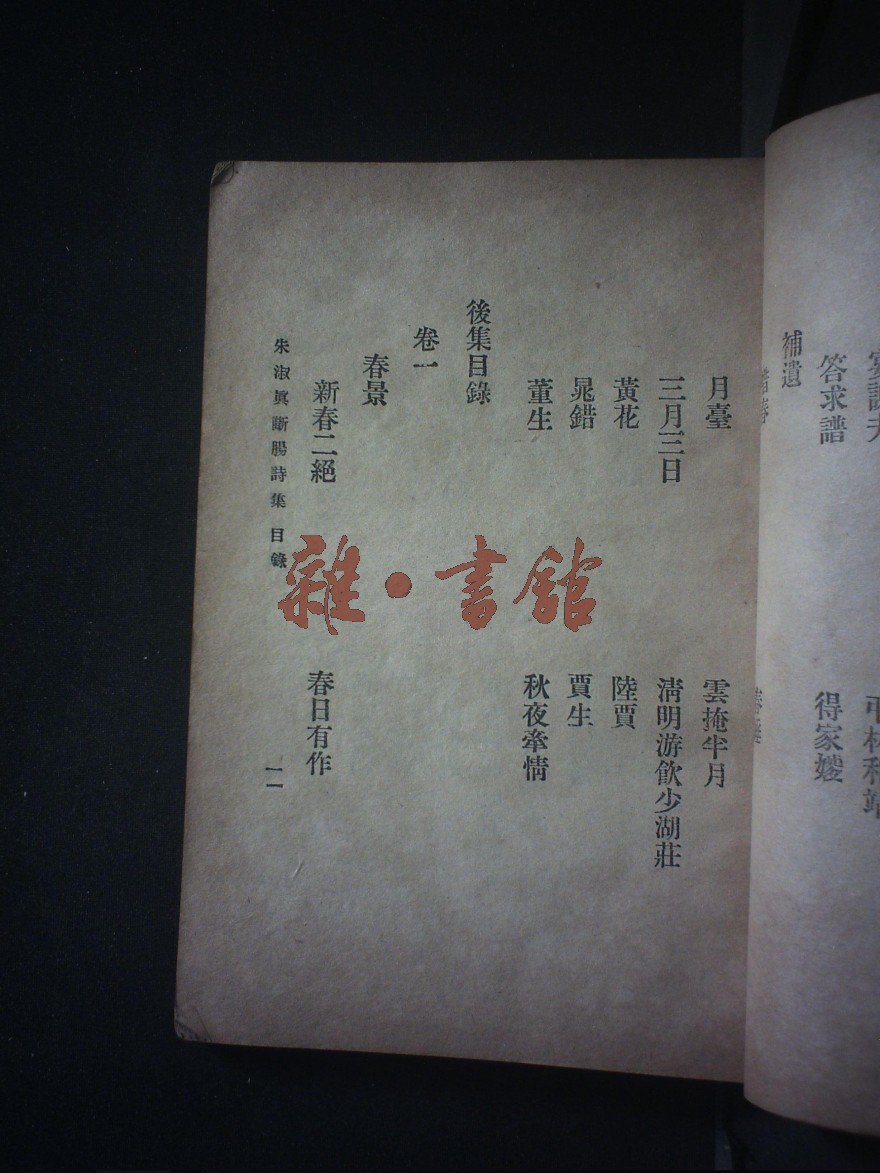 答求譜
得家嫂
補遺
月臺
雲掩半月
三月三日
清明游飲少湖莊
黃花
陸賈
晁錯
賈生
董生
秋夜牽情
後集目錄
卷一
春景
新春二絕
春日有作
朱淑眞斷腸詩集 目錄
一一
雜·書館